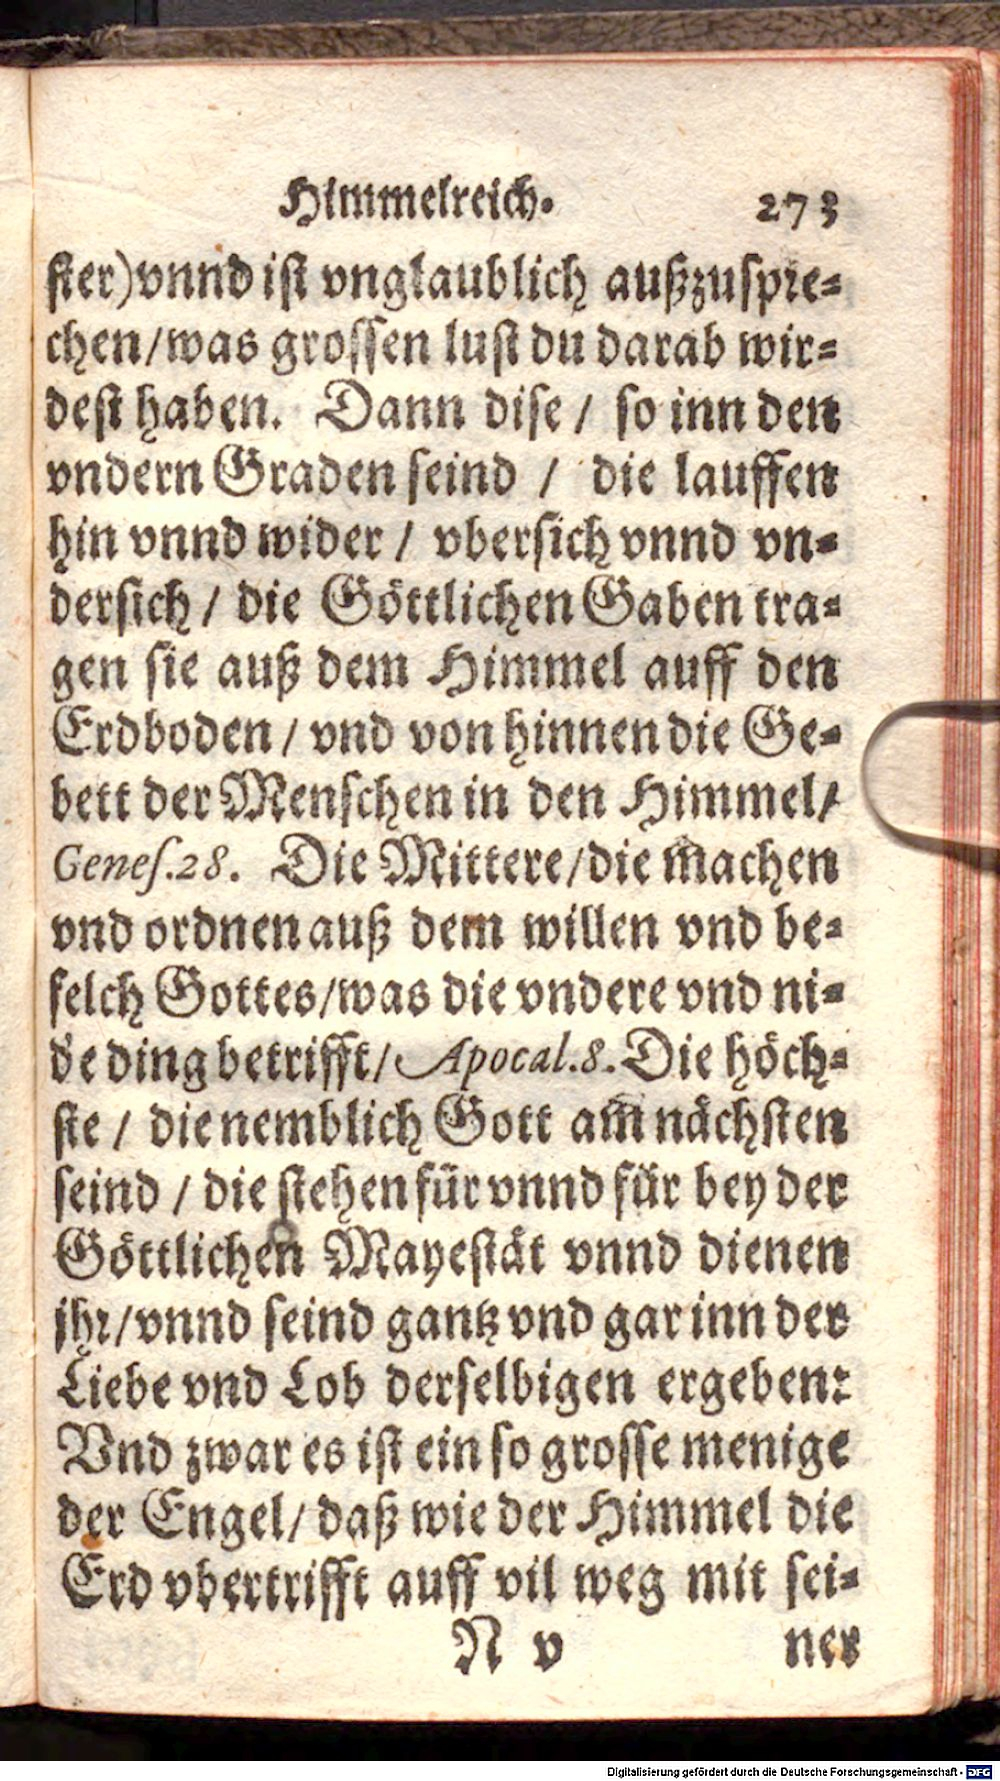 Himmelreich. 273
ster) vnnd ist vnglaublich außzuspre-
chen/was grossen lust du darab wir-
dest haben. Dann dise / so inn den
vndern Graden seind / die lauffen
hin vnnd wider / vbersich vnnd vn-
dersich / die Göttlichen Gaben tra-
gen sie auß dem Himmel auff den
Erdboden / vnd von hinnen die Ge-
bett der Menschen in den Himmel/
Genes.28. Die Mittere/die machen
vnd ordnen auß dem willen vnd be-
felch Gottes/was die vndere vnd ni-
de ding betrifft/ Apocal.8. Die höch-
ste / die nemblich Gott am nächsten
seind / die stehen für vnnd für bey der
Göttlichen Mayestät vnnd dienen
jhr/vnnd seind gantz vnd gar inn der
Liebe vnd Lob derselbigen ergeben:
Vnd zwar es ist ein so grosse menige
der Engel/ daß wie der Himmel die
Erd vbertrifft auff vil weg mit sei-
N v ner
Digitalisierung gefördert durch die Deutsche Forschungsgemeinschaft - DFG